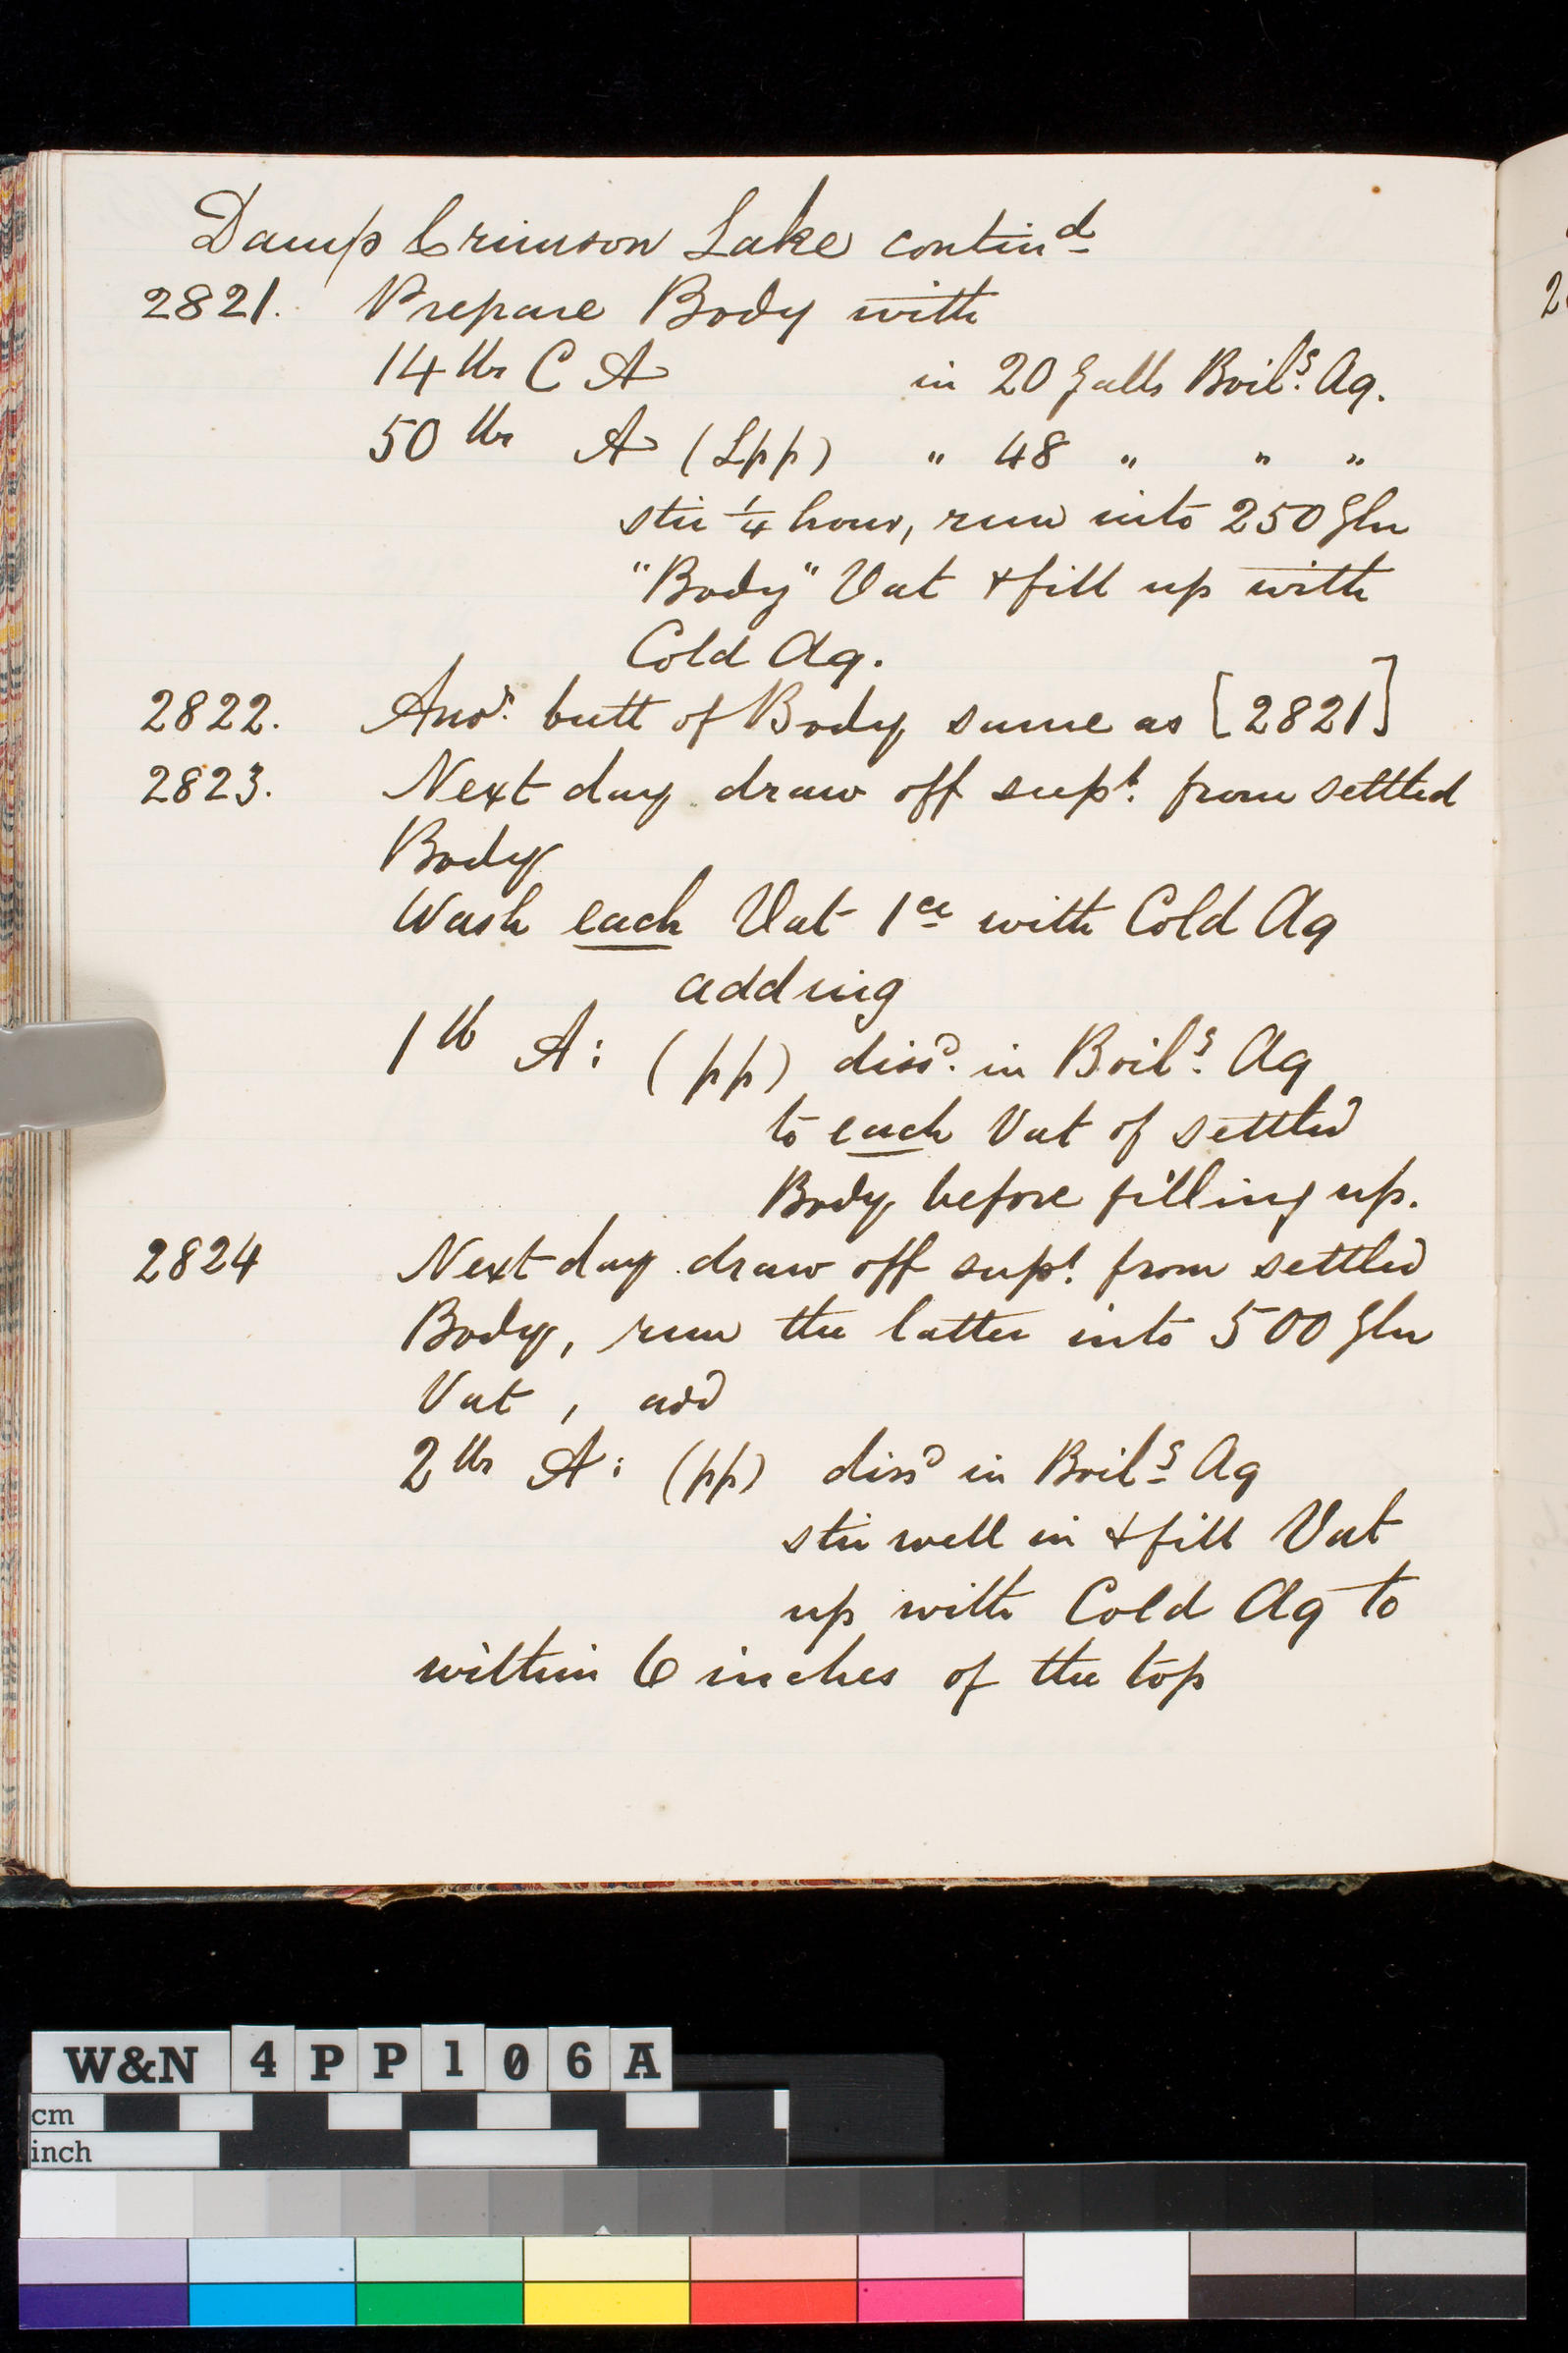 Damp Crimson Lake contind
2821. Prepare Body with
14 lbs C A in 20 galls Boilg. Aq.
50 lbs A (Lpp) " 48 " " "
stir 1/4 hour, run into 250 gln
"Body" Vat & fill up with
Cold Aq.
2822. Anor. butt of Body same as [2821]
2823. Next day draw off supt. from settled
Body
Wash each Vat 1ce with Cold Aq
adding
1 lb A: (pp) dissd. in Boilg. Aq
to each Vat of settled
Body before filling up.
2824 Next day draw off supt. from settled
Body, run the latter into 500 gln
Vat, add
2 lbs A: (pp) dissd in Boilg Aq
stir well in & fill Vat
up with Cold Aq to
within 6 inches of the top
2
W&N 4PP106A
cm
inch